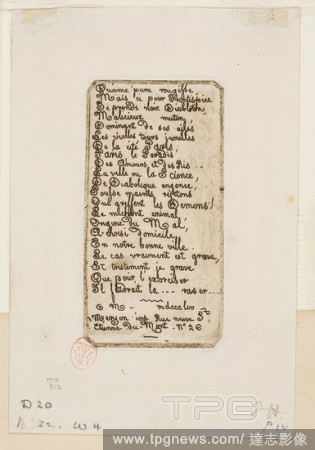 Qu'ame pure rougisse
Mais ci pour frontispice
Je prends noir Diablotin,
Malicieux mutin,
Dominant de ses ailes
Les vieilles tours jumelles
De la cité Paris,
Paris, le Paradis
Des Amours, et des Ris...
La ville ou la Science,
De Diabolique engence,
Pousse maints rejetons
Qui griffent les Démons!
Le méchant animal,
Origine du Mal,
A choisi domicile
En notre bonne ville.
Le cas vraiment est grave,
Et tristement je grave
Que pour l'exorciser
Il fâdrait la.... raser....
C. M - mdcccliv
Meryon imp. Rue neuve St
Etienne du Mt - No 26
D 20
W H
TPG
www.tpgnews.com | 達志影像